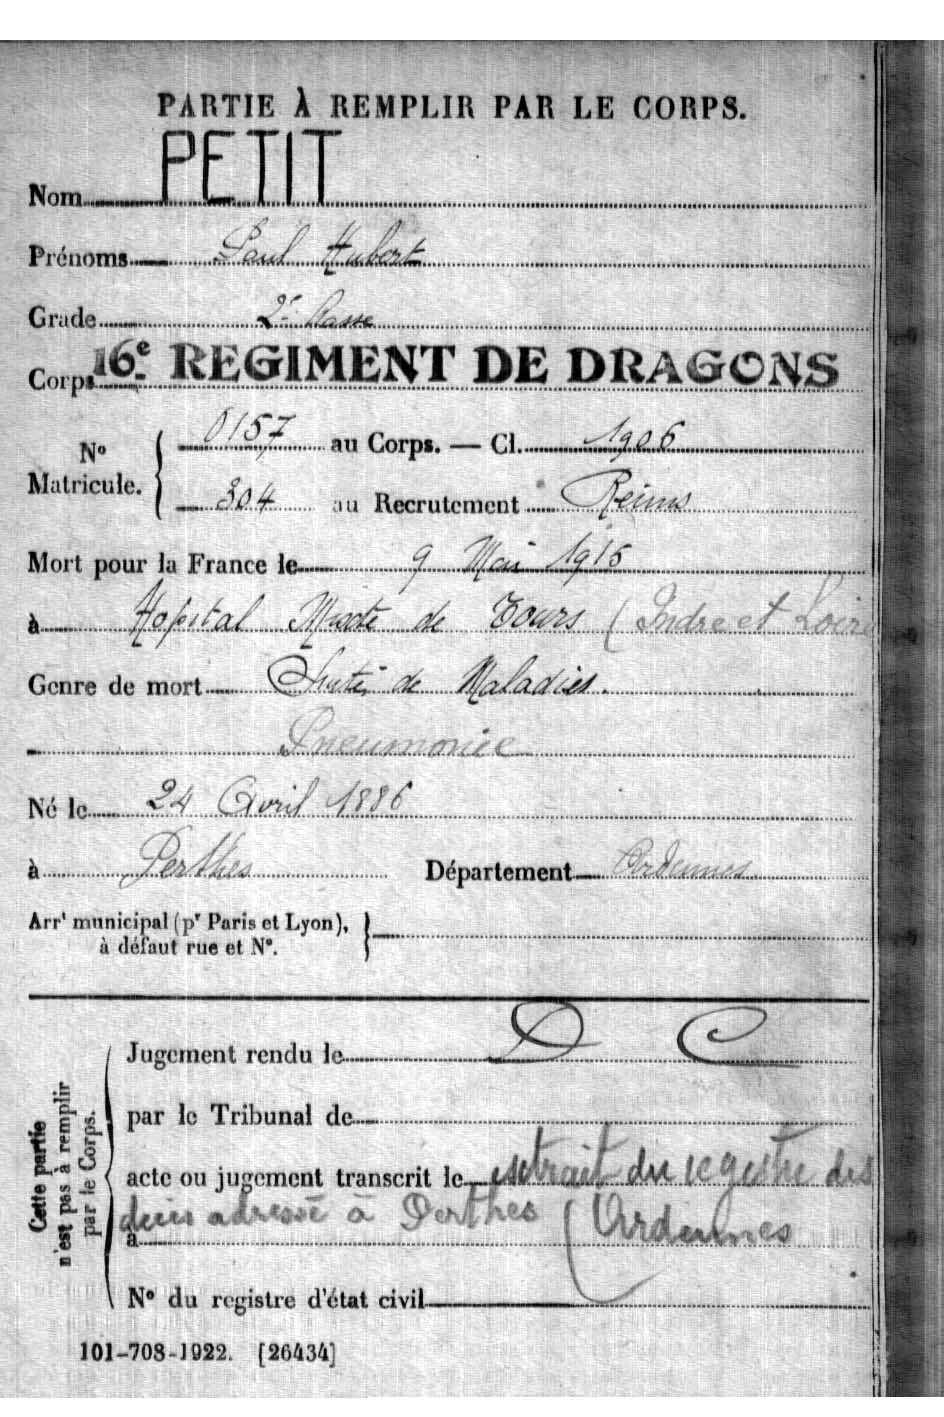 PARTIE À REMPLIR PAR LE CORPS.
Nom PETIT
Prénoms Paul Hubert
Grade 2e Classe
Corps 16e REGIMENT DE DRAGONS
No Matricule. { 0157 au Corps. — Cl. 1906
304 au Recrutement Reims
Mort pour la France le 9 Mai 1915
à Hopital Mixte de Tours (Indre et Loire
Genre de mort Suites de Maladies.
Pneumonie
Né le 24 Avril 1886
à Perthes Département Ardennes
Arrt municipal (pr Paris et Lyon), à défaut rue et No. }
Cette partie n'est pas à remplir par le Corps.
Jugement rendu le D C
par le Tribunal de
acte ou jugement transcrit le extrait du registre des
décès adressé à Perthes (Ardennes
à
No du registre d'état civil
101-708-1922. [26434]